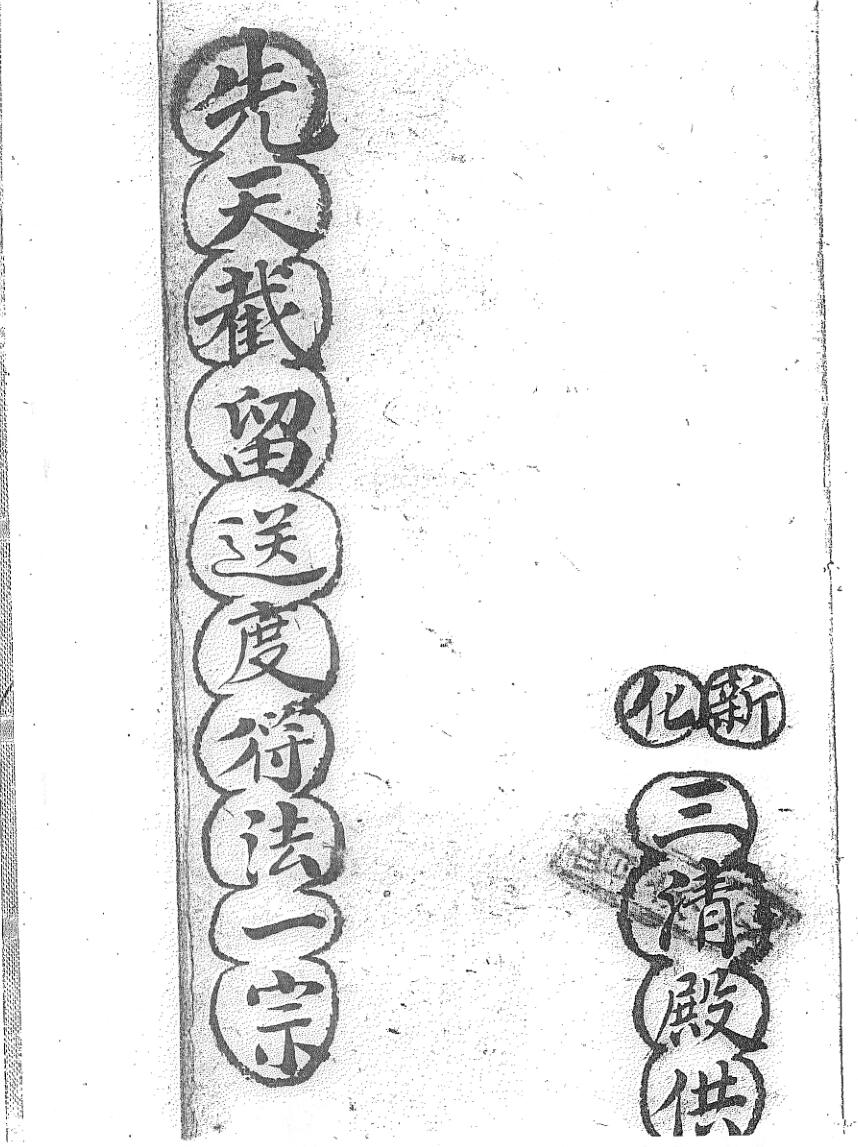 新化
三清殿供
先天截留送度符法一宗